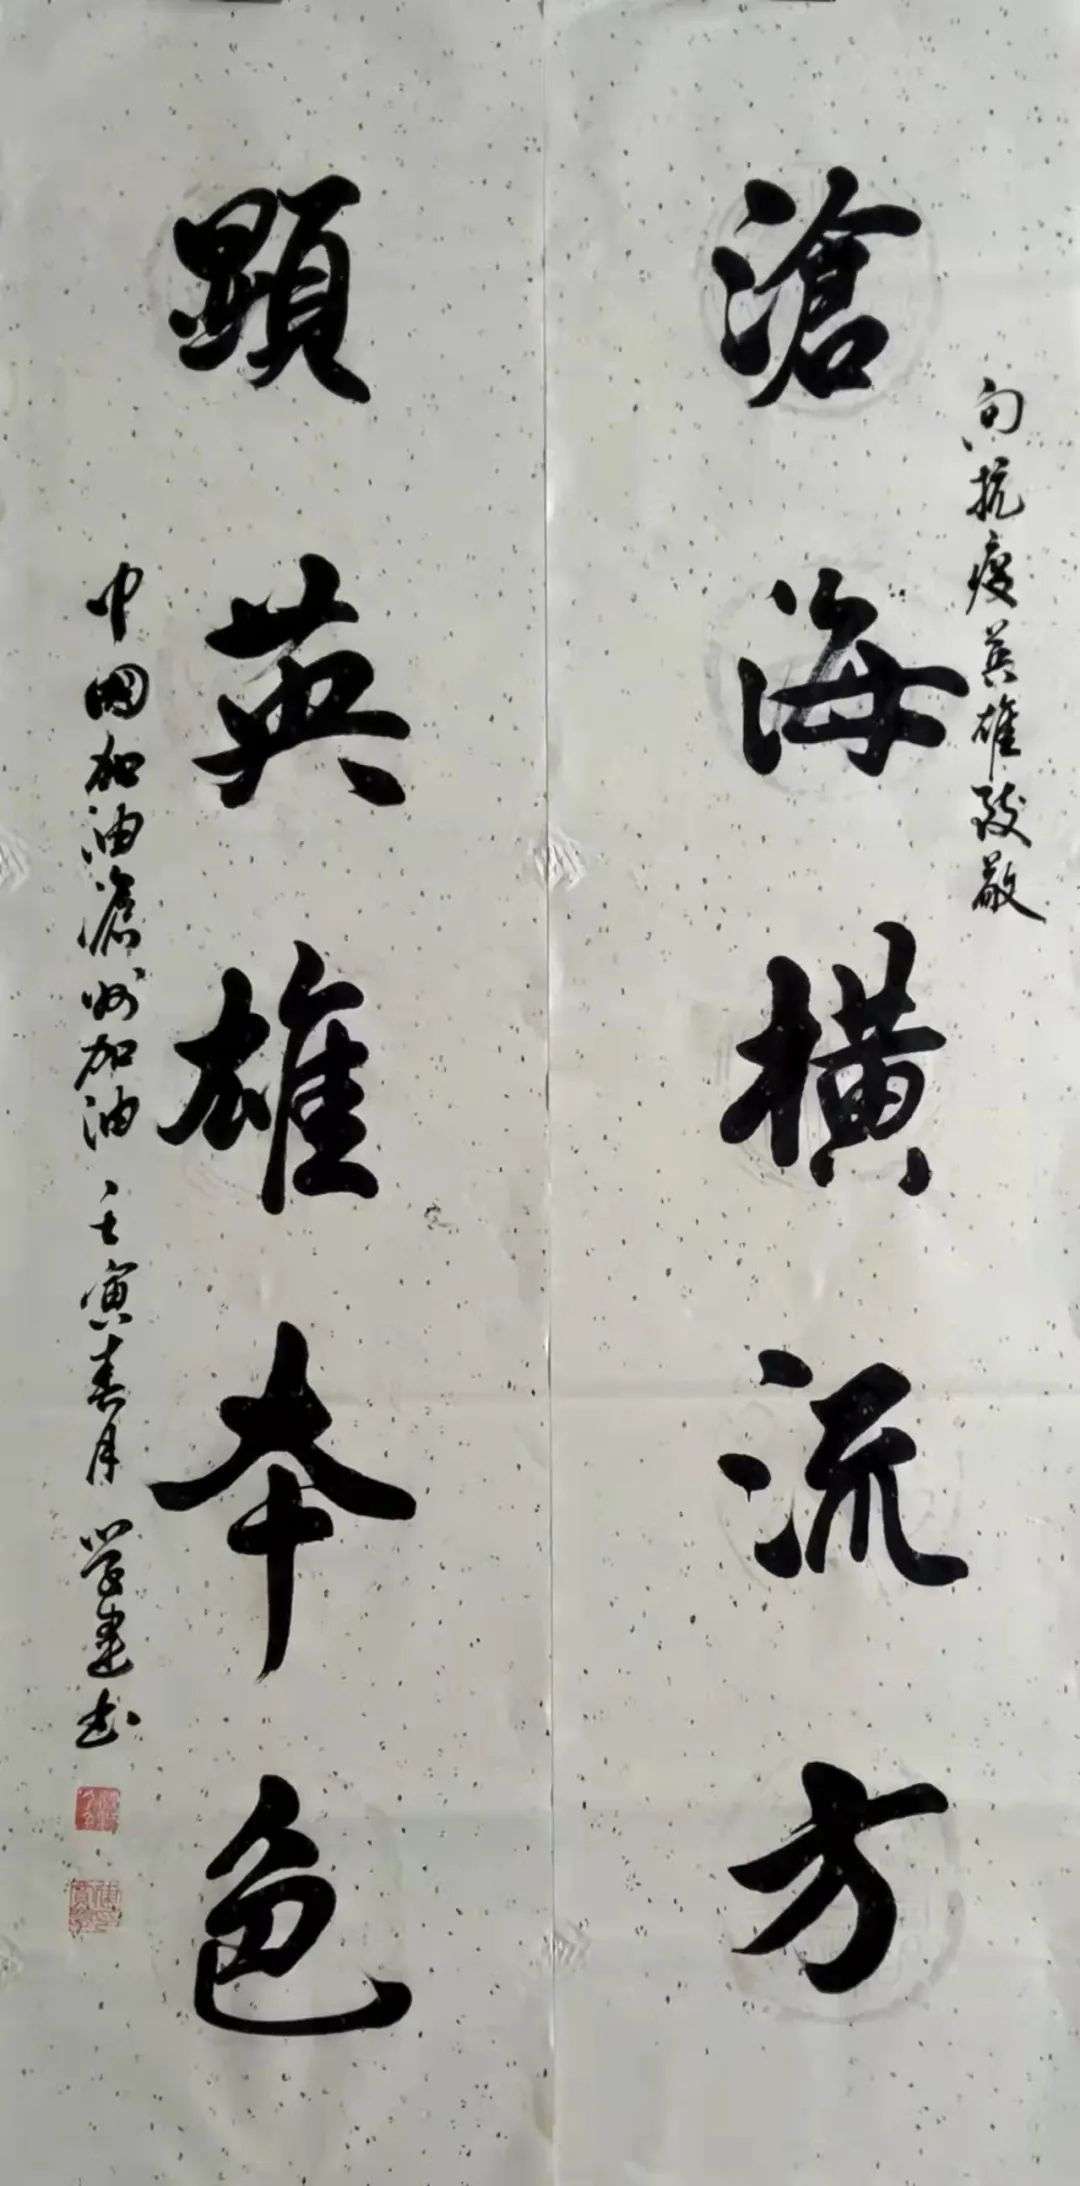 向抗疫英雄致敬
滄海橫流方
顯英雄本色
中國加油滄州加油 壬寅春月 學建书